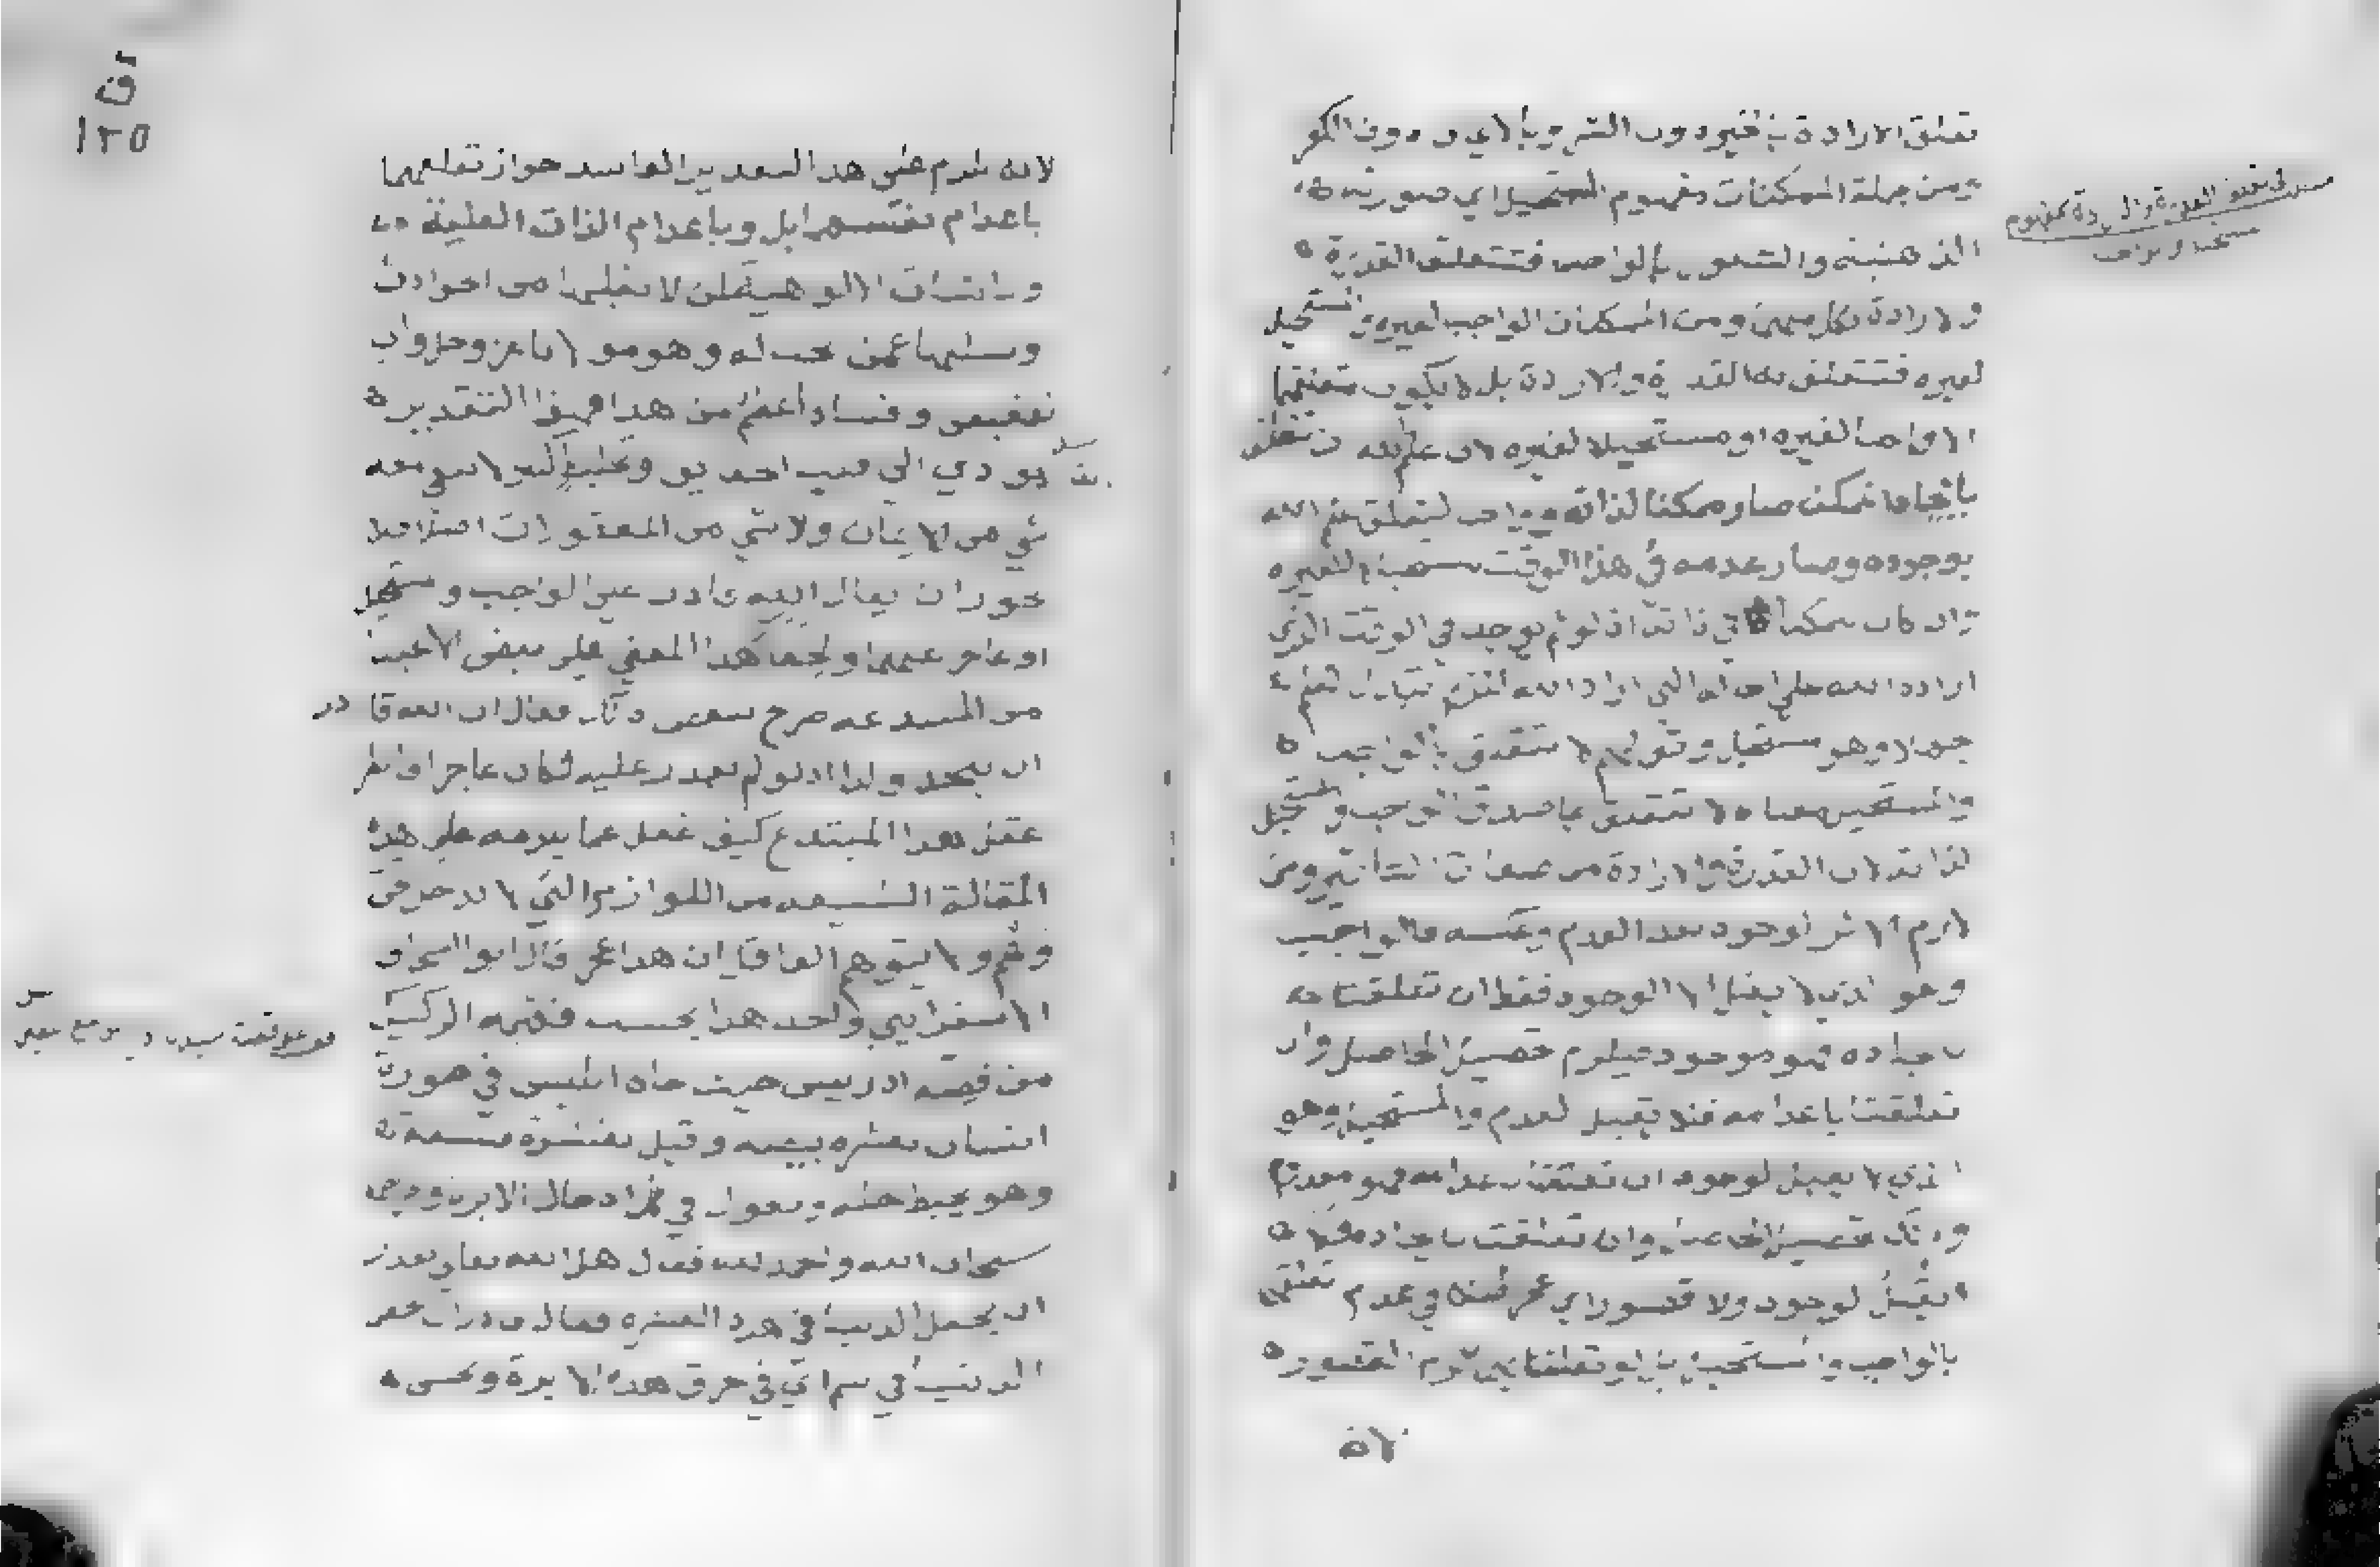 تعلق الارادة بالخير دون الشر وبالايمان دون الكفر
ومن جملة الممكنات مفهوم المستحيل اي صورته
الذهنية والشعور بالواجب فتتعلق القدرة
والارادة بكل ممكن ومن الممكنات الواجب لغيره والمستحيل
لغيره فتتعلق به القدرة والارادة بل لا يكون متعلقهما
الا واجبا لغيره او مستحيلا لغيره لان علم الله ان تعلق
بايجاد ممكن صار ممكنا لذاته وواجب لتعلق علم الله
بوجوده وصار عدمه في هذا الوقت مستحيلا لغيره
وان كان ممكنا في ذاته اذ لو لم يوجد في الوقت الذي
اراده الله علي الحالة التي اراد الله لزم انقلاب العلم
جهلا وهو مستحيل وقولهم لا تتعلق بالواجب
والمستحيل معناه لا تتعلق بما صدق الواجب والمستحيل
لذاته لان القدرة والارادة من صفات التاثير ومن
لازم الاثر الوجود بعد العدم وعكسه فالواجب
وهو الذي لا يقبل الا الوجود فقط ان تعلقتا
بايجاده فهو موجود فيلزم تحصيل الحاصل وان
تعلقتا باعدامه فلا يقبل العدم والمستحيل وهو
الذي لا يقبل الوجود ان تعلقتا باعدامه فهو معدوم
وذلك تحصيل الحاصل وان تعلقت بايجاده فهو لا
يقبل الوجود ولا قصور اي عجز فيهما في عدم تعلقهما
بالواجب والمستحيل بل لو تعلقتا بهما لزم القصور
لانه
ق
١٢٥
لانه يلزم علي هذا التقدير الفاسد جواز تعلقهما
باعدام نفسهما بل وباعدام الذات العلية
وباثبات الالوهية لمن لا يقبلها من الحوادث
وسلبها عمن تجب له وهو مولانا عز وجل واي
نقص وفساد اعظم من هذا فهذا التقدير
يودي الي تخليط لا يبقي معه
شي من الايمان ولا شي من المعقولات اصلا فلا
يجوز ان يقال الله قادر علي الواجب والمستحيل
او عاجز عنهما ولخفا هذا المعني علي بعض الاغبيا
من المبتدعة صرح بنقيض ذلك فقال ان الله قادر
ان يتخذ ولدا اذ لو لم يقدر عليه لكان عاجزا فانظر
عقل هذا المبتدع كيف غفل عما يلزمه علي هذه
المقالة الشنيعة من اللوازم التي لا تدخل في
وهم ولا يتوهم العاقل ان هذا عجز قال ابو اسحاق
الاسفرايني واخذ هذا بحسب فهمه الركيك
من قصة ادريس حيث جاه ابليس في صورة
انسان بقشرة بيضة وقيل بقشرة فستقة
وهو يخيط حلة ويقول في ادخال الابرة وخروجها
سبحان الله والحمد لله فقال هل الله تعالي يقدر
ان يجعل الدنيا في هذه القشرة فقال قادر ان يجعل
الدنيا في سم اي في خرق هذه الابرة ونخس